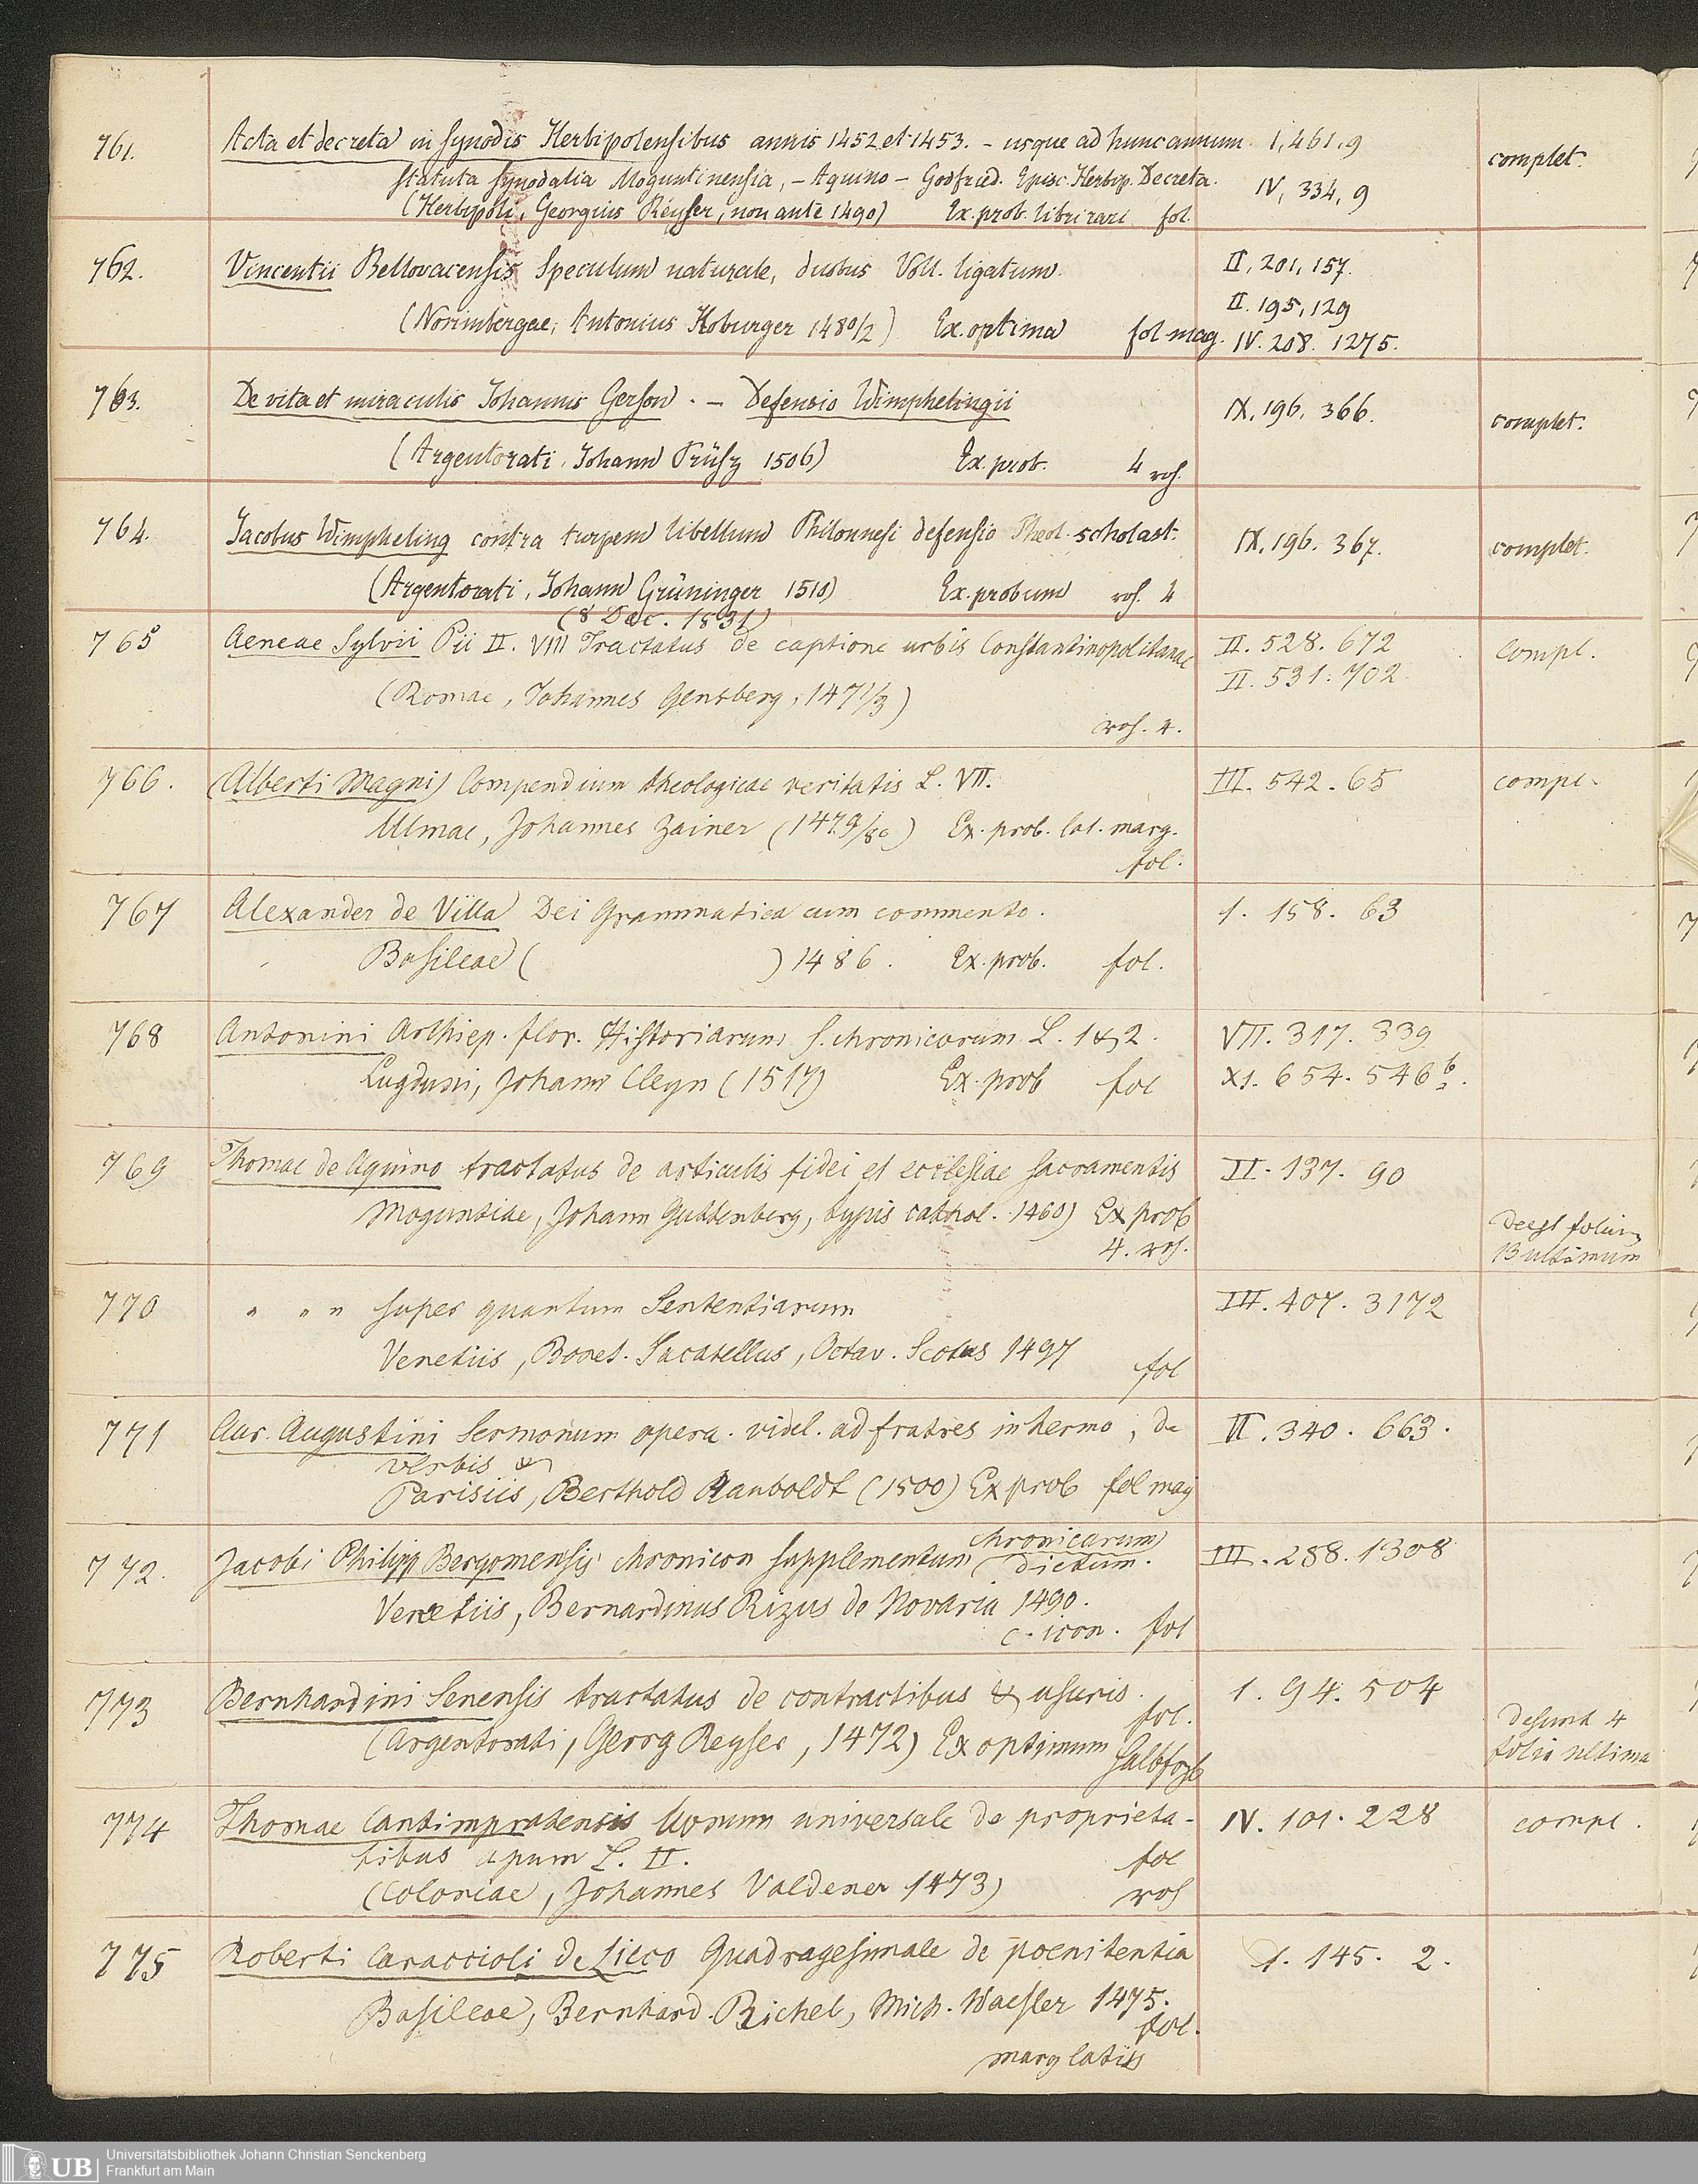 761. Acta et decreta in synodis Herbipolensibus annis 1452 et 1453. – usque ad hunc annum. 1, 461, 9 complet.
Statuta synodalia Moguntinensia, – Aquino – Godfried. Episc. Herbip. Decreta. IV, 334, 9
(Herbipoli, Georgius Reyser, non ante 1490) Ex. prob. libri rari fol.
762. Vincentii Bellovacensis Speculum naturale, duobus Voll. ligatum. II, 201, 157.
II. 195, 129
(Norimbergae, Antonius Koburger 1480/2) Ex. optima fol mag. IV. 208. 1275.
763. De vita et miraculis Johannis Gerson. – Defensio Wimphelingii IX, 196, 366. complet.
(Argentorati, Johann Prüsz 1506) Ex. prob. 4 roh.
764. Jacobus Wimpheling contra turpem libellum Philomnesi defensio Theol. scholast. IX, 196. 367. complet.
(Argentorati, Johann Grüninger 1510) Ex. probum roh. 4
(8 Dec. 1831)
765 Aeneae Sylvii Pii II. VIII Tractatus de captione urbis Constantinopolitanae II. 528. 672 compl.
II. 531. 702.
(Romae, Johannes Gensberg, 1471/3)
roh. 4.
766. (Alberti Magni) Compendium theologicae veritatis L. VII. III. 542. 65 compl.
Ulmae, Johannes Zainer (1479/80) Ex. prob. lat. marg.
fol.
767 Alexander de Villa Dei Grammatica cum commento. 1. 158. 63
Basileae ( ) 1486. Ex. prob. fol.
768 Antonini Archiep. flor. Historiarum s. chronicorum L. 1 & 2. VII. 317. 339
Lugduni, Johann Cleyn (1517) Ex. prob fol XI. 654. 546 b.
769 Thomae de Aquino tractatus de articulis fidei et ecclesiae sacramentis II. 137. 90
Moguntiae, Johann Guttenberg, typis cathol. 1460) Ex prob
4. roh. Deest folium
13 ultimum
770 " " " super quantum Sententiarum III. 407. 3172
Venetiis, Bonet. Locatellus, Octav. Scotus 1497
fol
771 Aur. Augustini Sermonum opera. videl. ad fratres in hermo, de II. 340. 663.
verbis &
Parisiis, Berthold Ranboldt (1500) Ex prob fol mag
772. Jacobi Philipp Bergomensis chronicon supplementum chronicarum III. 288. 1308
dictum.
Venetiis, Bernardinus Rizus de Novaria 1490.
c. icon. fol
773 Bernhardini Senensis tractatus de contractibus & usuris. 1. 94. 504
fol.
(Argentorati, Georg Reyser, 1472) Ex optimum Desunt 4
folia ultima
774 Thomae Cantimpratensis bonum universale de proprieta- IV. 101. 228 compl.
tibus apum L. II. fol
(Coloniae, Johannes Valdener 1473) roh
775 Roberti Caraccioli de Licco Quadragesimale de poenitentia 1. 145. 2.
Basileae, Bernhard. Richel, Mich. Waesler 1475.
fol.
marg latis
UB Universitätsbibliothek Johann Christian Senckenberg
Frankfurt am Main